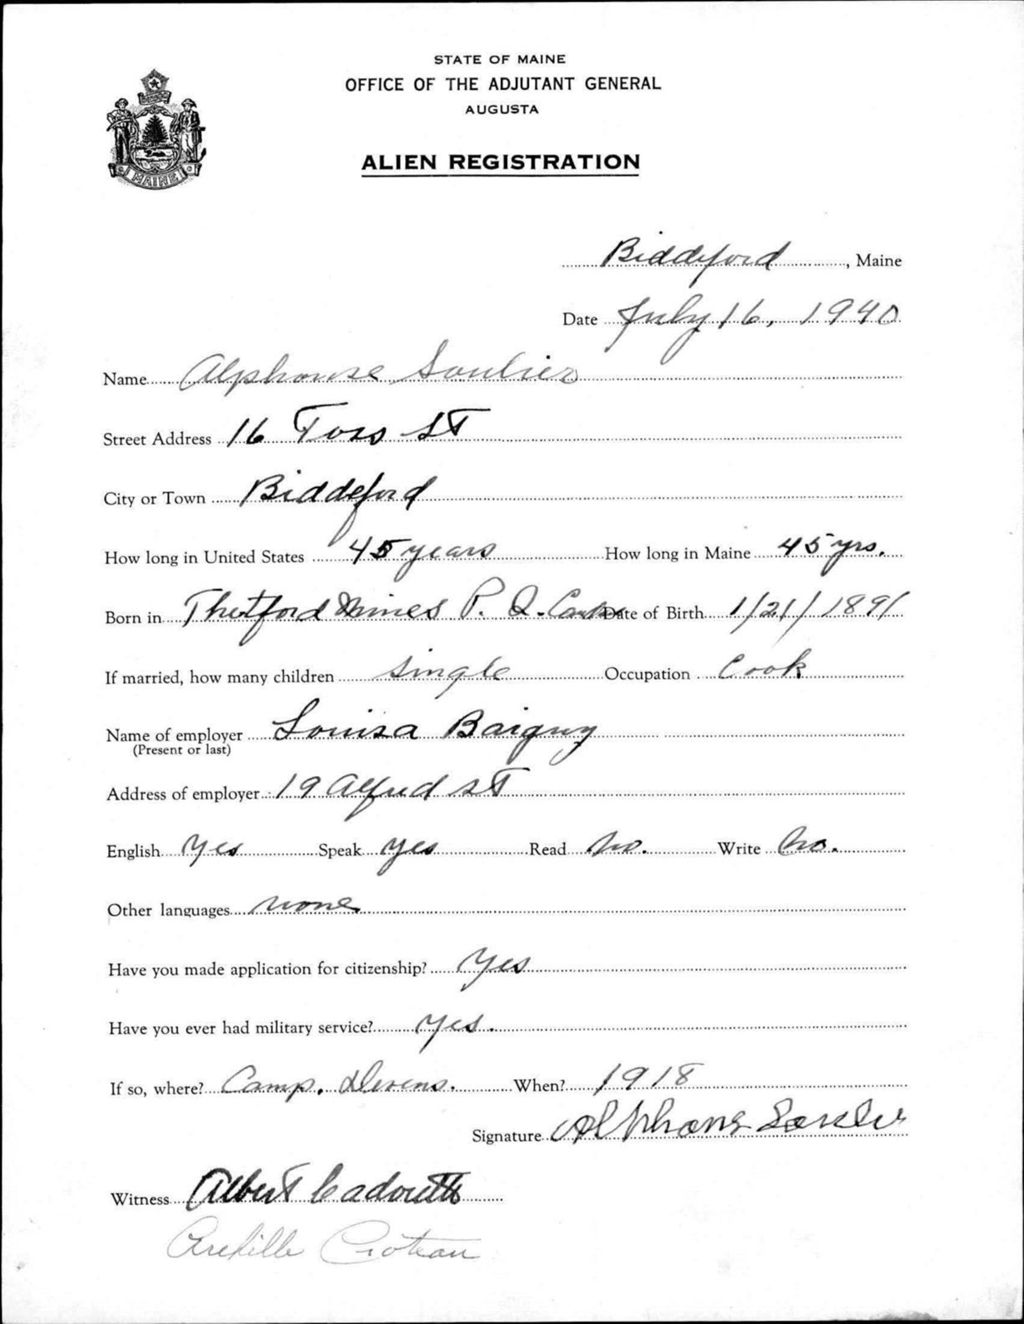 STATE OF MAINE
OFFICE OF THE ADJUTANT GENERAL
AUGUSTA
ALIEN REGISTRATION
MAINE
Biddeford, Maine
Date July 16, 1940
Name Alphonse Soulier
Street Address 16 Foss St
City or Town Biddeford
How long in United States 45 years How long in Maine 45 yrs.
Born in Thetford Mines P. Q. Date of Birth 1/21/1891
If married, how many children single Occupation Cook
Name of employer Louisa
(Present or last)
Address of employer 19 Alfred St
English Yes Speak yes Read No. Write No.
Other languages none
Have you made application for citizenship? Yes
Have you ever had military service? Yes.
If so, where? Camp. Devens. When? 1918
Signature
Witness Albert
Croteau